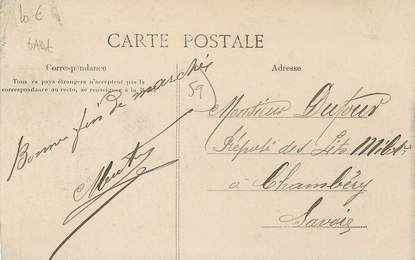 10 €
CARTE POSTALE
Correspondance
Tous ces pays étrangers n'acceptent pas la
correspondance au recto, se renseigner à la
Adresse
59
Bonne fin de marchés
Monsieur Dufour
Préposé des Lits Milit
à Chambéry
Savoie